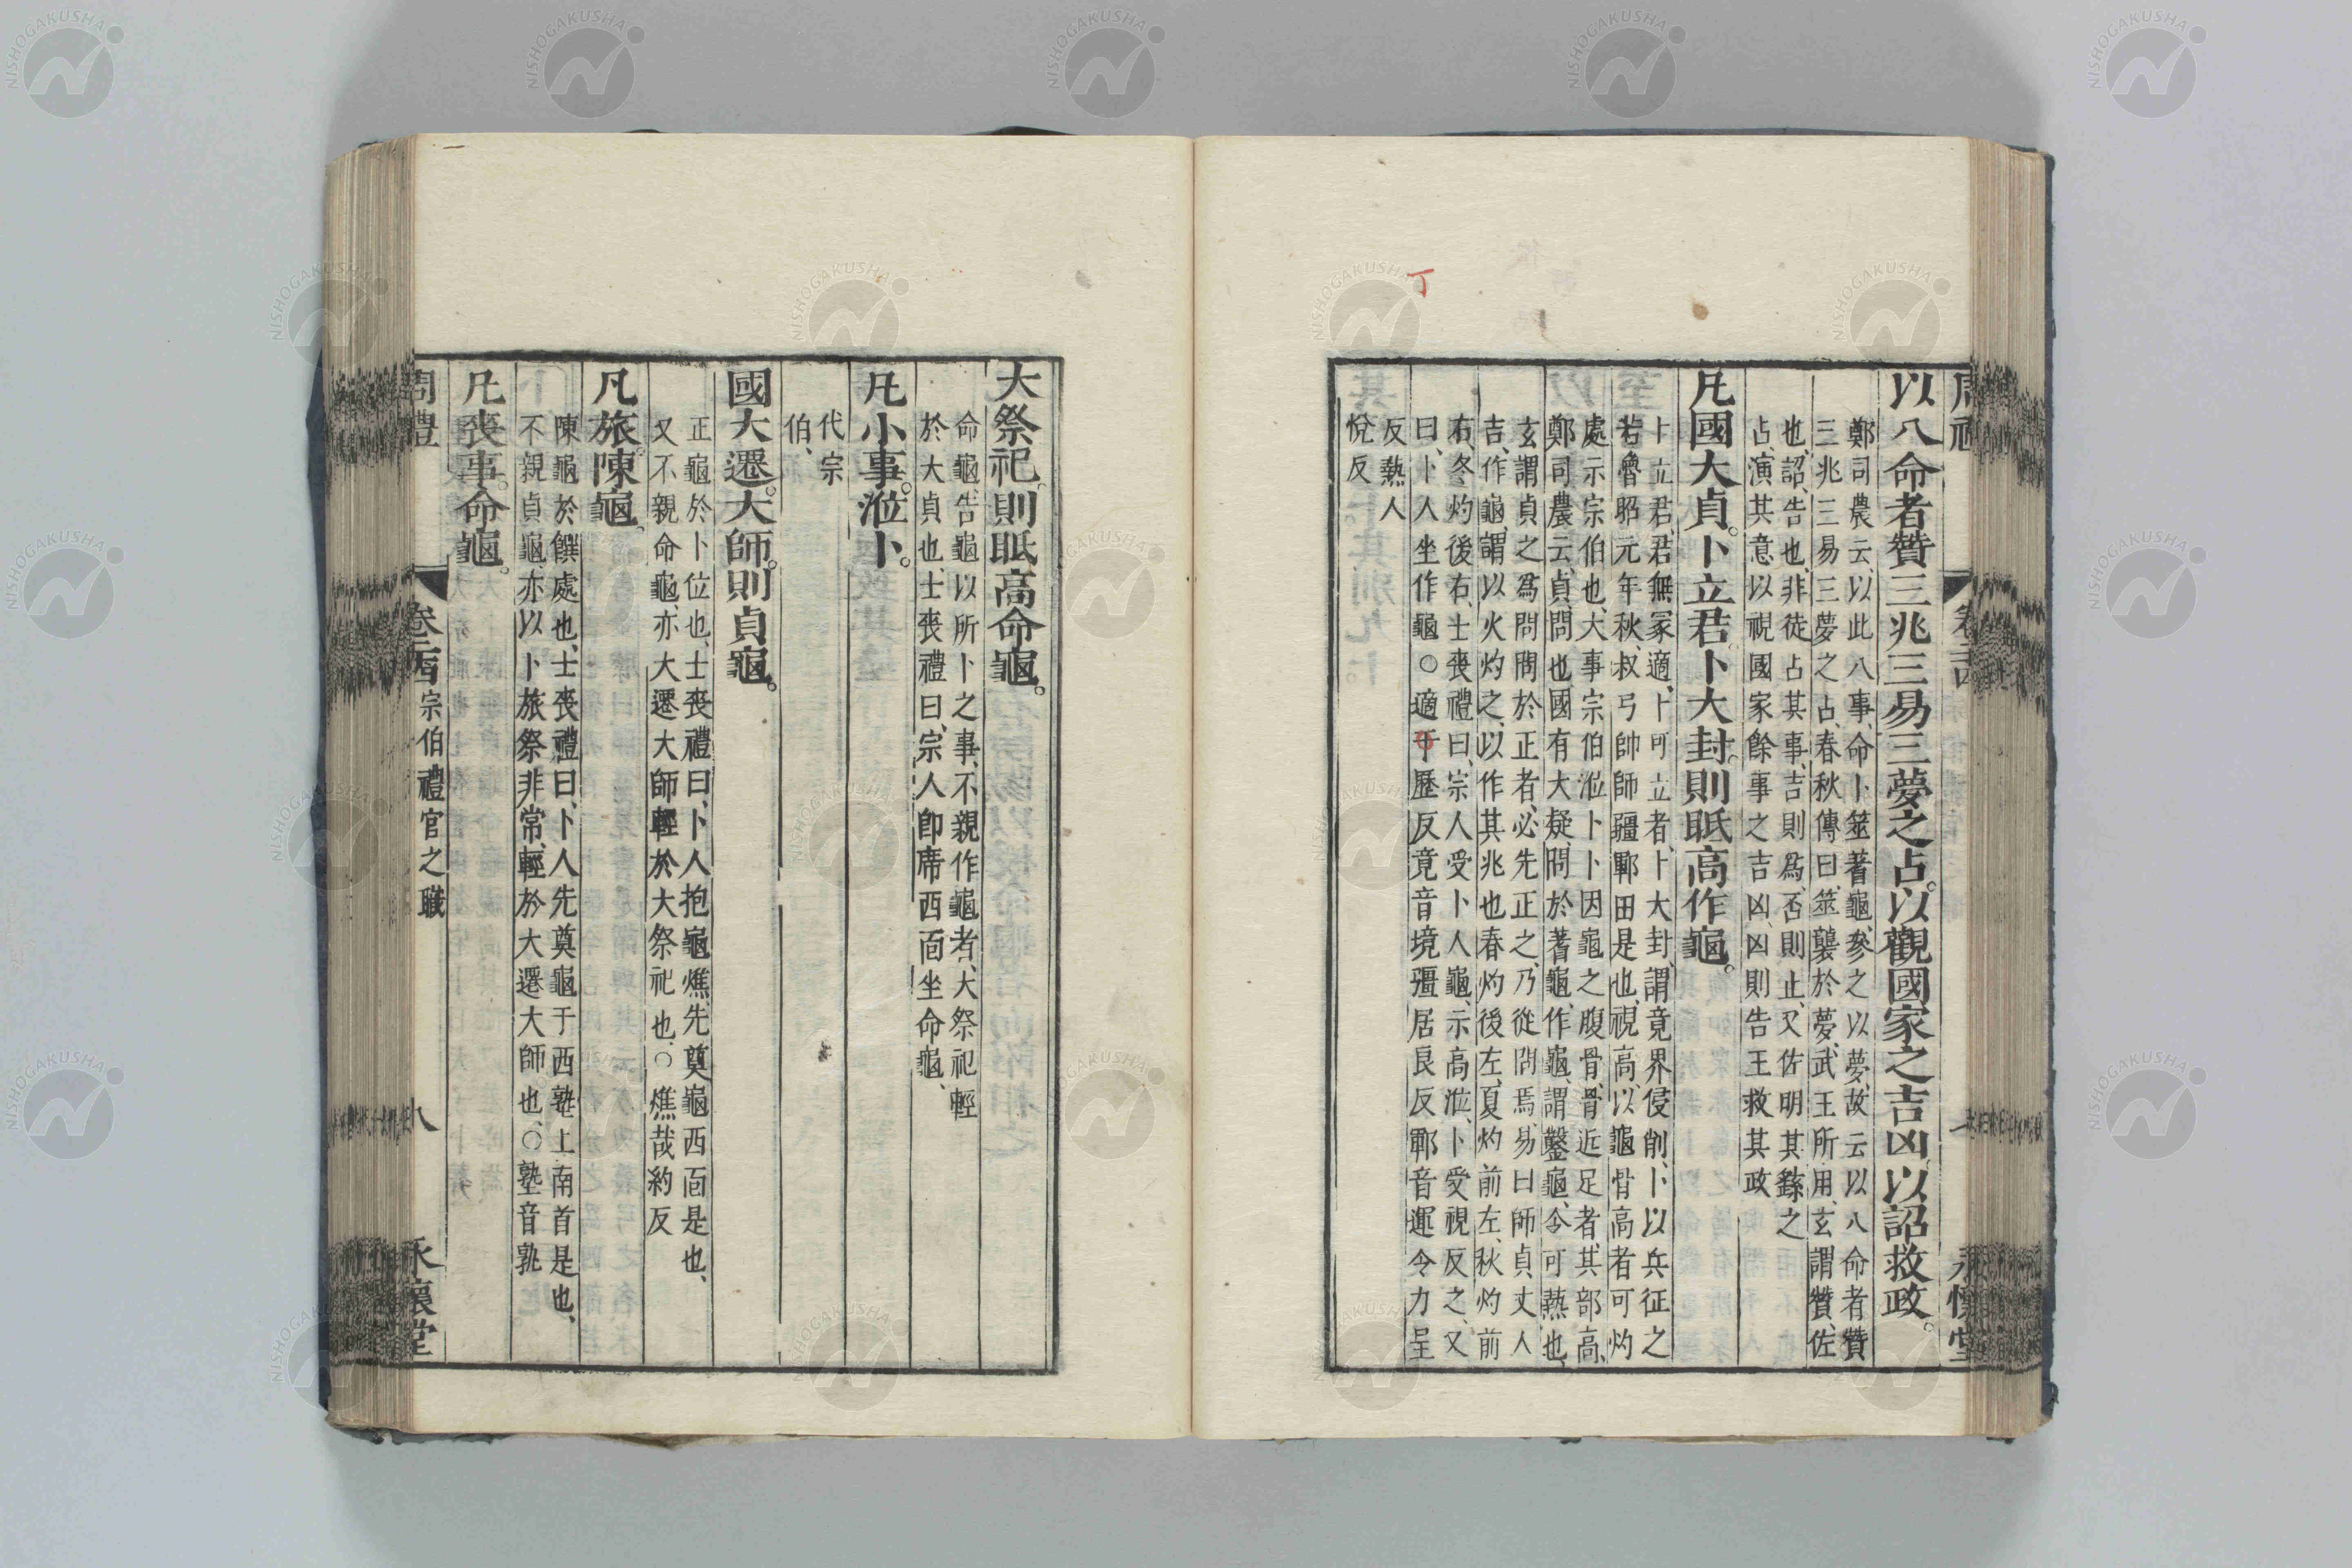 以八命者贊三兆三易三夢之占。以觀國家之吉凶。以詔救政。
鄭司農云、以此八事、命卜筮蓍龜、參之以夢、故云以八命者贊
三兆三易三夢之占、春秋傳曰、筮襲於夢、武王所用、玄謂贊、佐
也、詔、告也、非徒占其事、吉則爲、否則止、又佐明其繇之
占、演其意、以視國家餘事之吉凶、凶則告王救其政
凡國大貞。卜立君。卜大封。則眡高作龜。
卜立君、君無冢適、卜可立者、卜大封、謂竟界侵削、卜以兵征之
若魯昭元年秋、叔弓帥師疆鄆田是也、視高、以龜骨高者可灼
處示宗伯也、大事宗伯涖卜、卜因龜之腹骨、骨近足者、其部高、
鄭司農云、貞、問也、國有大疑、問於蓍龜、作龜、謂鑿龜、令可爇也、
玄謂貞之爲問、問於正者、必先正之、乃從問焉、易曰師貞、丈人
吉、作龜、謂以火灼之、以作其兆也、春灼後左、夏灼前左、秋灼前
右、冬灼後右、士喪禮曰、宗人受卜人龜、示高、涖卜受視反之、又
曰、卜人坐作龜○適丁歷反竟音境疆居良反鄆音運令力呈
反爇人
悅反
丁
大祭祀。則眡高命龜。
命龜、告龜以所卜之事、不親作龜者、大祭祀輕
於大貞也、士喪禮曰、宗人卽席西面坐命龜、
凡小事。涖卜。
代宗
伯、
國大遷。大師。則貞龜。
正龜於卜位也、士喪禮曰、卜人抱龜燋、先奠龜西面是也、
又不親命龜、亦大遷大師輕於大祭祀也、○燋哉約反
凡旅。陳龜。
陳龜於饌處也、士喪禮曰、卜人先奠龜于西塾上南首是也、
不親貞龜、亦以卜旅祭非常、輕於大遷大師也、○塾音孰
凡喪事。命龜。
周禮 卷二十四 宗伯禮官之職 八 永懷堂
NISHOGAKUSHA